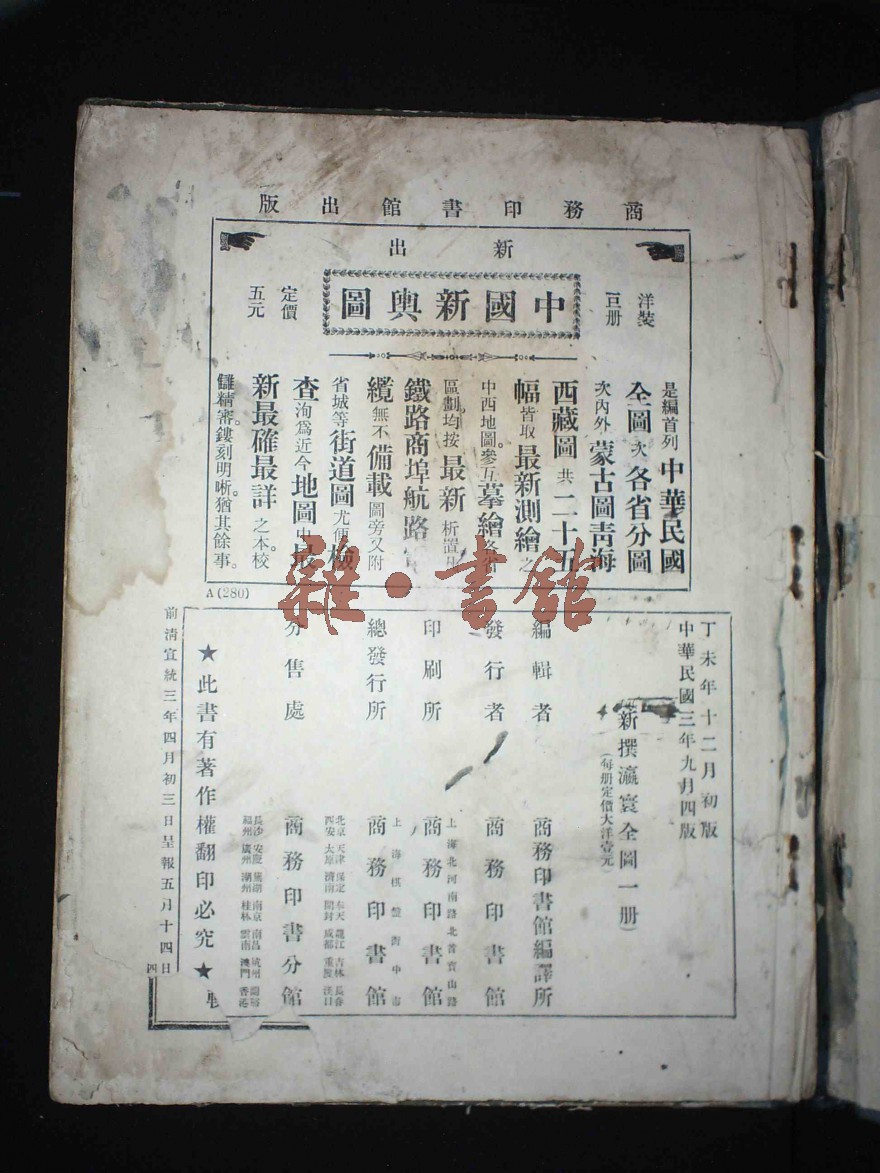 商務印書館出版
新出
洋裝
一百册
中國新輿圖
定價
五元
是編首列中華民國
全圖次各省分圖
次內外蒙古圖青海
西藏圖共二十五
幅皆取最新測繪之
中西地圖。參互摹繪各省
區劃。均按最新析置
鐵路商埠航路
纜無不備載圖旁又附
省城等街道圖尤便檢
查洵爲近今地圖中最
新最確最詳之本。校
讎精審。鏤刻明晰。猶其餘事。
A(280)
雜·書館
丁未年十二月初版
中華民國三年九月四版
新撰瀛寰全圖一册
(每册定價大洋壹元)
編輯者 商務印書館編譯所
發行者 商務印書館
上海北河南路北首寶山路
印刷所 商務印書館
上海棋盤街中市
總發行所 商務印書館
北京 天津 保定 奉天 龍江 吉林 長春
西安 太原 濟南 開封 成都 重慶 漢口
分售處 商務印書分館
長沙 安慶 蕪湖 南京 南昌 杭州 蘭谿
福州 廣州 潮州 桂林 雲南 澳門 香港
★此書有著作權翻印必究★
前清宣統三年四月初三日呈報五月十四日
四